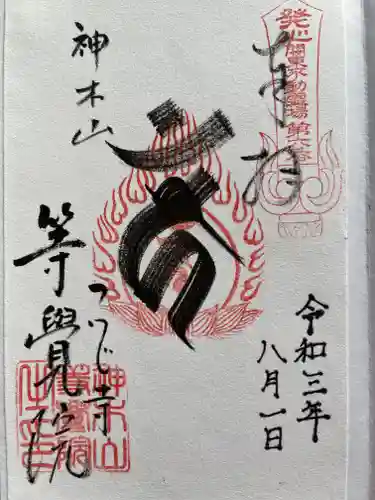 発心
関東不動霊場 第六番
奉拝
令和三年
八月一日
神木山
つつじ寺
等覺院
神木山
等覺院